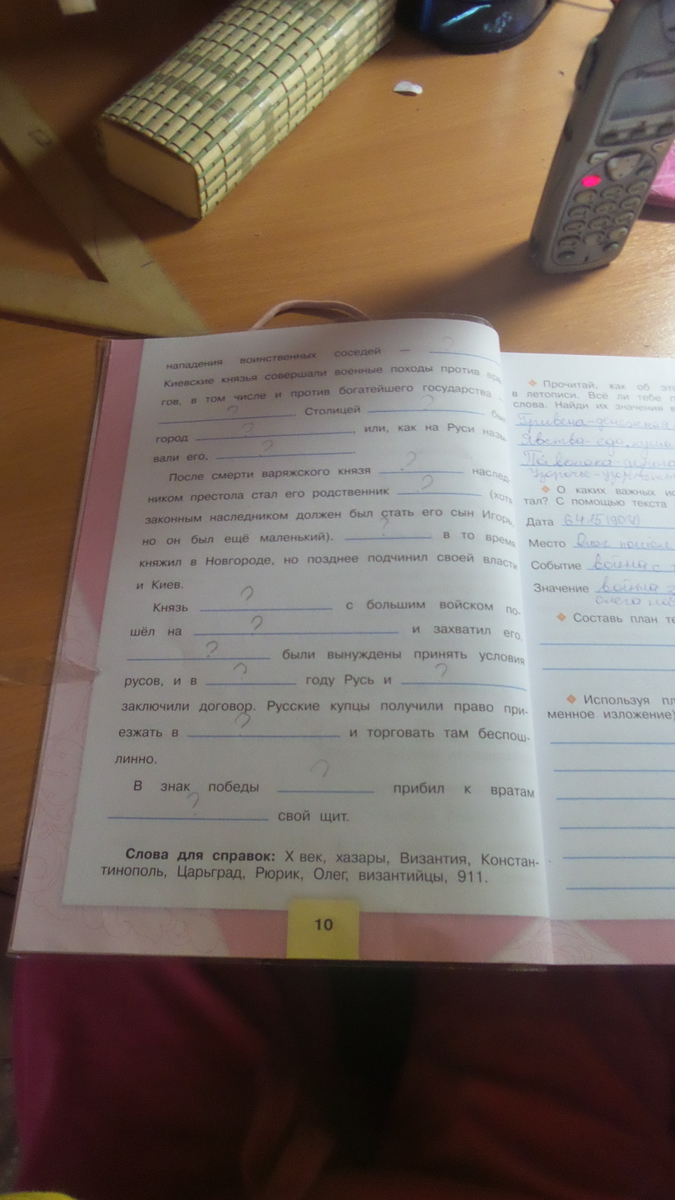 нападения воинственных соседей — ?
Киевские князья совершали военные походы против вра-
гов, в том числе и против богатейшего государства —
? Столицей ? был
город ?, или, как на Руси назы-
вали его, ?.
После смерти варяжского князя ? наслед-
ником престола стал его родственник ? (хотя
законным наследником должен был стать его сын Игорь,
но он был ещё маленький). ? в то время
княжил в Новгороде, но позднее подчинил своей власти
и Киев.
Князь ? с большим войском по-
шёл на ? и захватил его.
? были вынуждены принять условия
русов, и в ? году Русь и ?
заключили договор. Русские купцы получили право при-
езжать в ? и торговать там беспош-
линно.
В знак победы ? прибил к вратам
? свой щит.
Слова для справок: X век, хазары, Византия, Констан-
тинополь, Царьград, Рюрик, Олег, византийцы, 911.
10
Прочитай, как об
в летописи. Всё ли тебе
слова. Найди их значения
Гривена-денежная
Яства-еда
О каких важных
тал? С помощью текста
Дата 6415 (907)
Место
Событие война с
Значение война
Составь план
Используя
менное изложение)